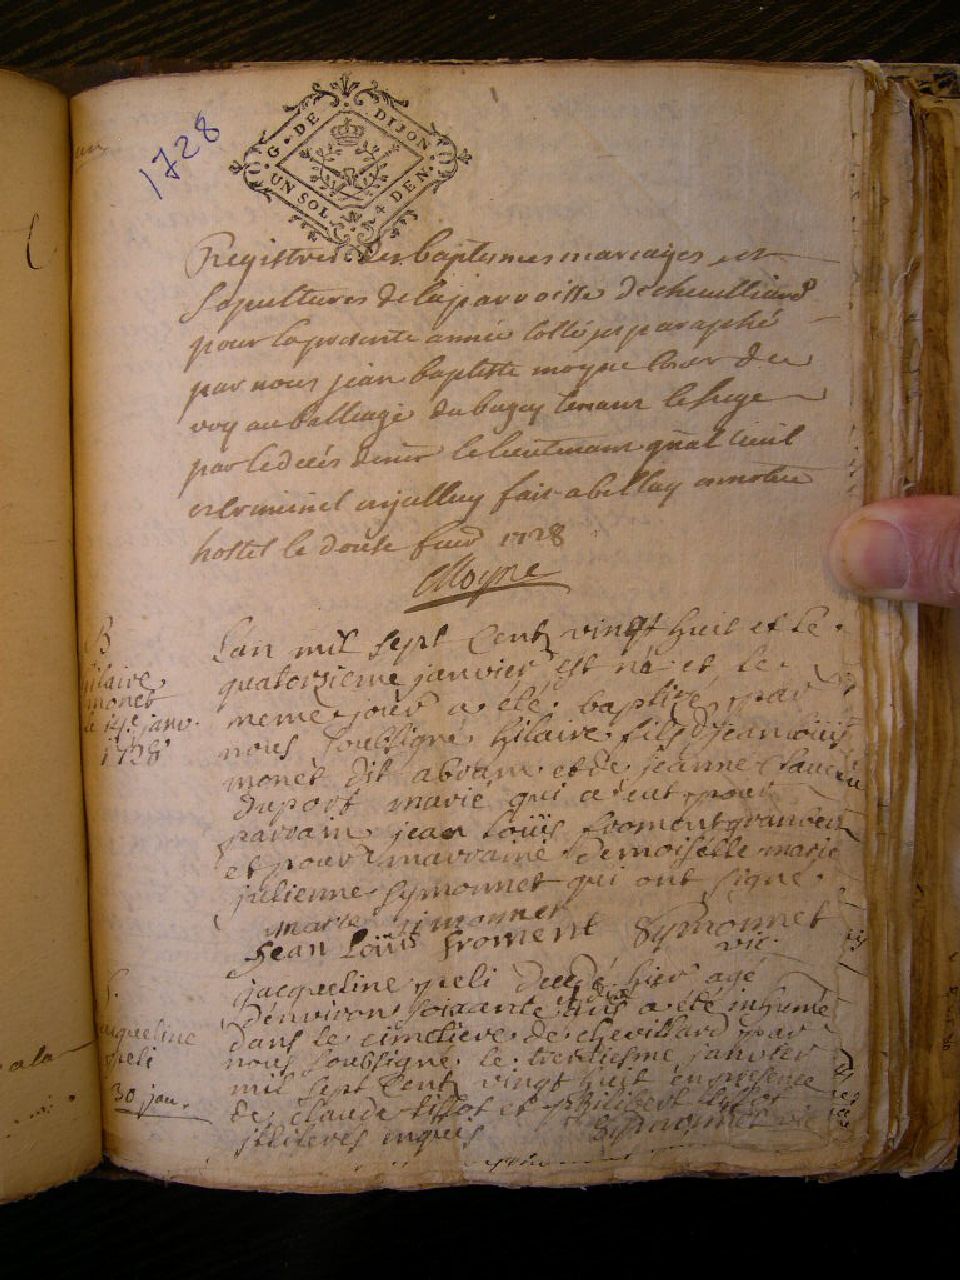 1728
G. DE DIJON
UN SOL 4 DEN.
Registres des baptesmes mariages et
sepultures de la parroisse de cheuilliard
pour la presente année cotté et paraphé
par nous jean baptiste moyne
roy au balliage du bugey tenant le siege
par le deces de le lieutenant gnal ciuil
et criminel fait a bellay en notre
hostel le douse 1728
Moyne
B
hilaire
monet
le 14e janv.
1728
Lan mil sept Centz vingt huit et le
quatorzieme janvier est né et le
meme jour a été baptizé par
nous soubsigné hilaire fils d jean loüis
monet dit abram et de jeanne Claudin
duport marié qui a eut pour
parrain jean Loüis froment
et pour marraine demoiselle marie
julienne Symonnet qui ont signé.
marie simonnet
Jean Loüis froment Symonnet
vic.
S.
jacqueline
peli
30 jan.
jacqueline peli decedé hier agé
denviron soixante ans a été inhumé
dans le cimetiere de chevillard par
nous soubsigné le janvier
mil sept Centz vingt huit en presence
de Claude tissot et philibert tissot
jlliteres enquis Symonnet vic